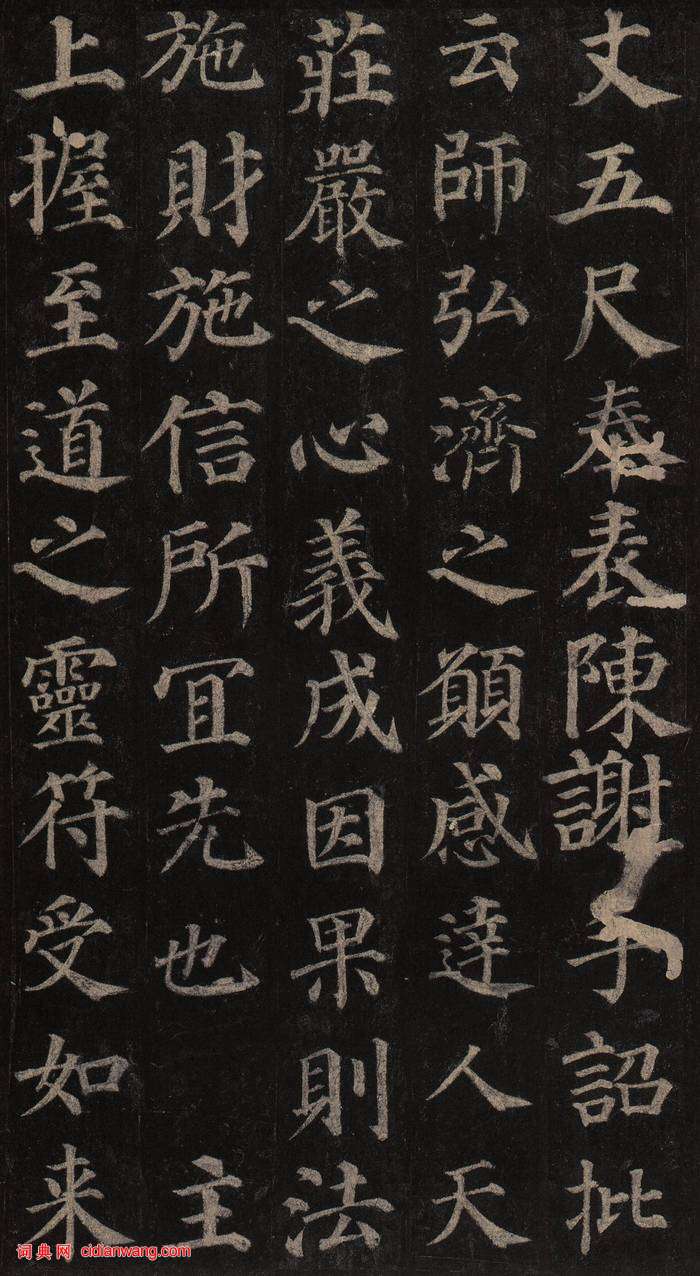 丈五尺奉表陳謝手詔批
云師弘濟之願感逹人天
莊嚴之心義成因果則法
施財施信所冝先也 主
上握至道之靈符受如来
词典网 cidianwang.com